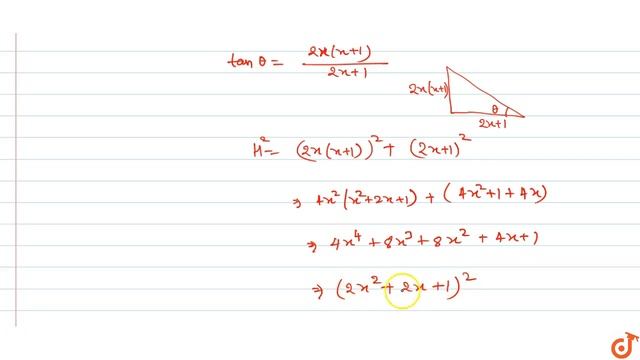 tan θ = 2x(x+1) / 2x+1
2x(x+1)
θ
2x+1
H² = (2x(x+1))² + (2x+1)²
⇒ 4x²(x²+2x+1) + (4x²+1+4x)
⇒ 4x⁴ + 8x³ + 8x² + 4x+1
⇒ (2x² + 2x + 1)²